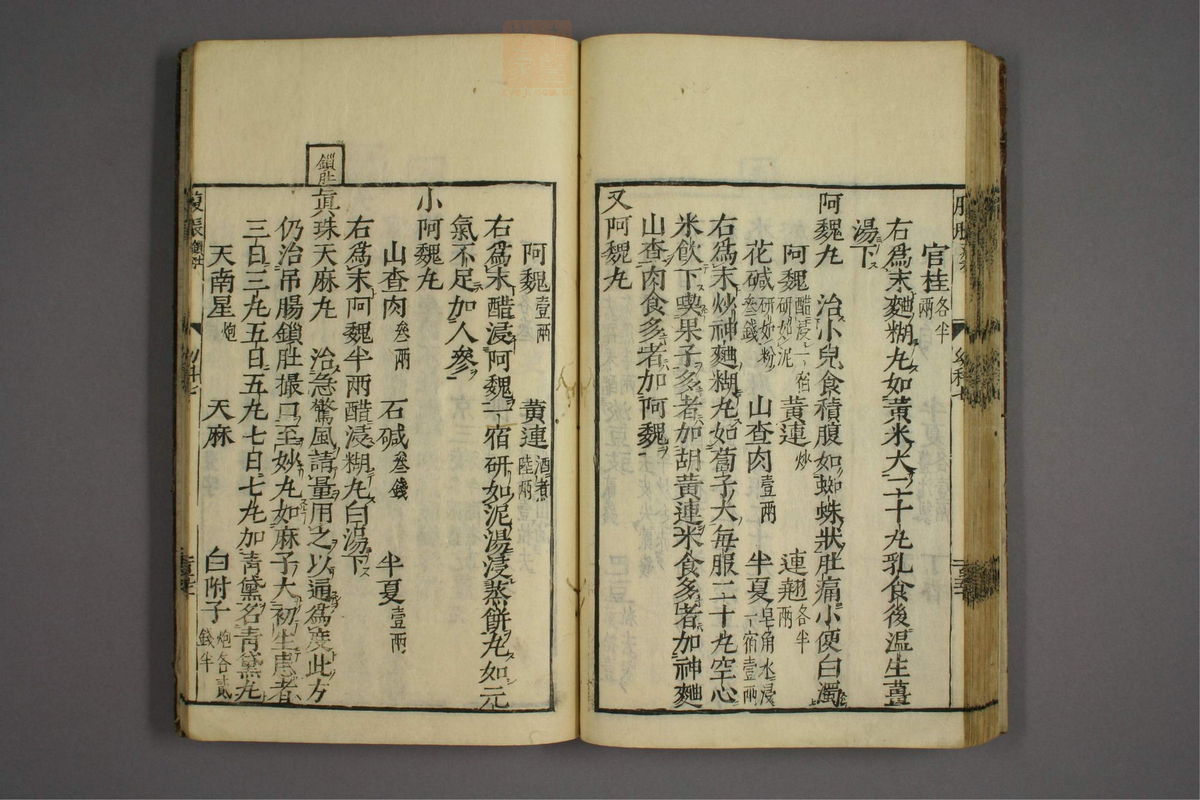 官桂各半兩
右爲末麯糊丸如黃米大一二十丸乳食後溫生薑
湯下
阿魏丸 治小兒食積腹如蜘蛛狀肚痛小便白濁
阿魏醋浸一宿研如泥 黃連炒 連翹各半兩
花碱研如粉叁錢 山查肉壹兩 半夏皂角水浸一宿壹兩
右爲末炒神麯糊丸如蔔子大每服二十丸空心
米飲下喫果子多者加胡黃連米食多者加神麯
山查肉食多者加阿魏
又阿魏丸
阿魏壹兩 黃連酒煮陸兩
右爲末醋浸阿魏一宿研如泥湯浸蒸餅丸如元
氣不足加人參
小阿魏丸
山查肉叁兩 石碱叁錢 半夏壹兩
右爲末阿魏半兩醋浸糊丸白湯下
鎖肚
眞珠天麻丸 治急驚風請量用之以通爲度此方
仍治吊腸鎖肚撮口至妙丸如麻子大初生患者
三日三丸五日五丸七日七丸加靑黛名靑黛丸
天南星炮 天麻 白附子炮各貳錢半